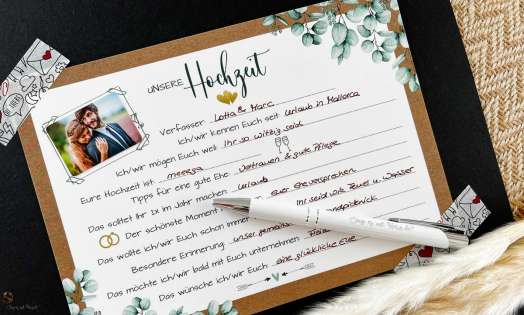 UNSERE Hochzeit
Verfasser Lotta & Marc
Ich/wir kennen Euch seit Urlaub in Mallorca
Ich/wir mögen Euch weil Ihr so witzig seid
Eure Hochzeit ist meeega
Tipps für eine gute Ehe Vertrauen & gute Pflege
Das solltet Ihr 1x im Jahr machen Urlaub
Der schönste Moment Euer Eheversprechen
Das wollte ich/wir Euch schon immer Ihr seid wie Feuer u. Wasser
Besondere Erinnerung unser
Das möchte ich/wir bald mit Euch unternehmen
Das wünsche ich/wir Euch eine glückliche Ehe